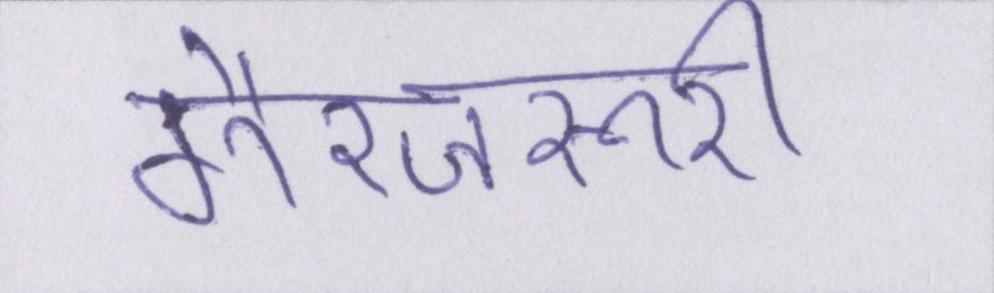 गैरजरूरी